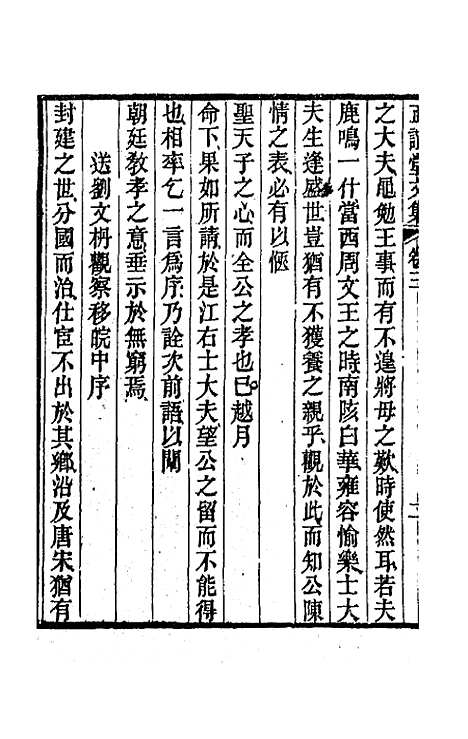 正誼堂文集 卷三
之大夫黽勉王事而有不遑將母之歎時使然耳若夫
鹿鳴一什當西周文王之時南陔白華雍容愉樂士大
夫生逢盛世豈猶有不獲養之親乎觀於此而知公陳
情之表必有以愜
聖天子之心而全公之孝也已越月
命下果如所請於是江右士大夫望公之留而不能得
也相率乞一言爲序乃詮次前語以聞
朝廷敎孝之意垂示於無窮焉
送劉文枬觀察移皖中序
封建之世分國而治仕宦不出於其鄉沿及唐宋猶有